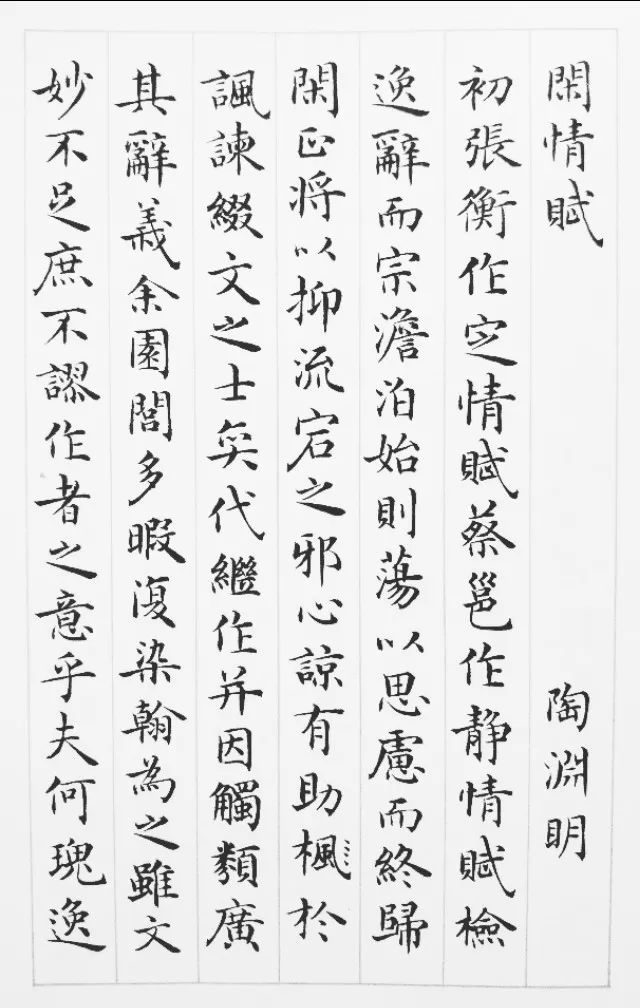 閑情賦 陶淵明
初張衡作定情賦蔡邕作静情賦檢
逸辭而宗澹泊始則蕩以思慮而終歸
閑正将以抑流宕之邪心諒有助楓於
諷諫綴文之士奕代繼作并因觸類廣
其辭義余園閭多暇復染翰為之雖文
妙不足庶不謬作者之意乎夫何瑰逸